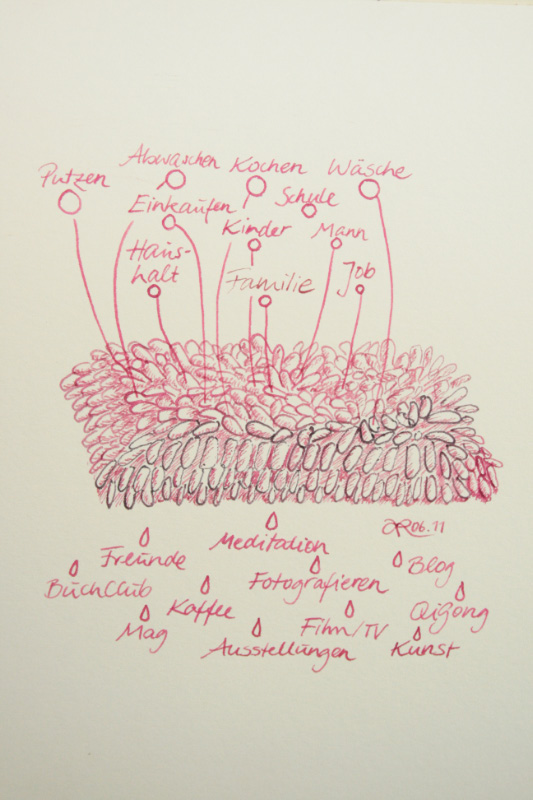 Abwaschen Kochen Wäsche
Putzen
Einkaufen Schule
Kinder Mann
Haus-
halt Familie Job
06.11
Freunde Meditation Blog
BuchClub Fotografieren
Kaffee Qigong
Mag Film/TV
Ausstellungen Kunst